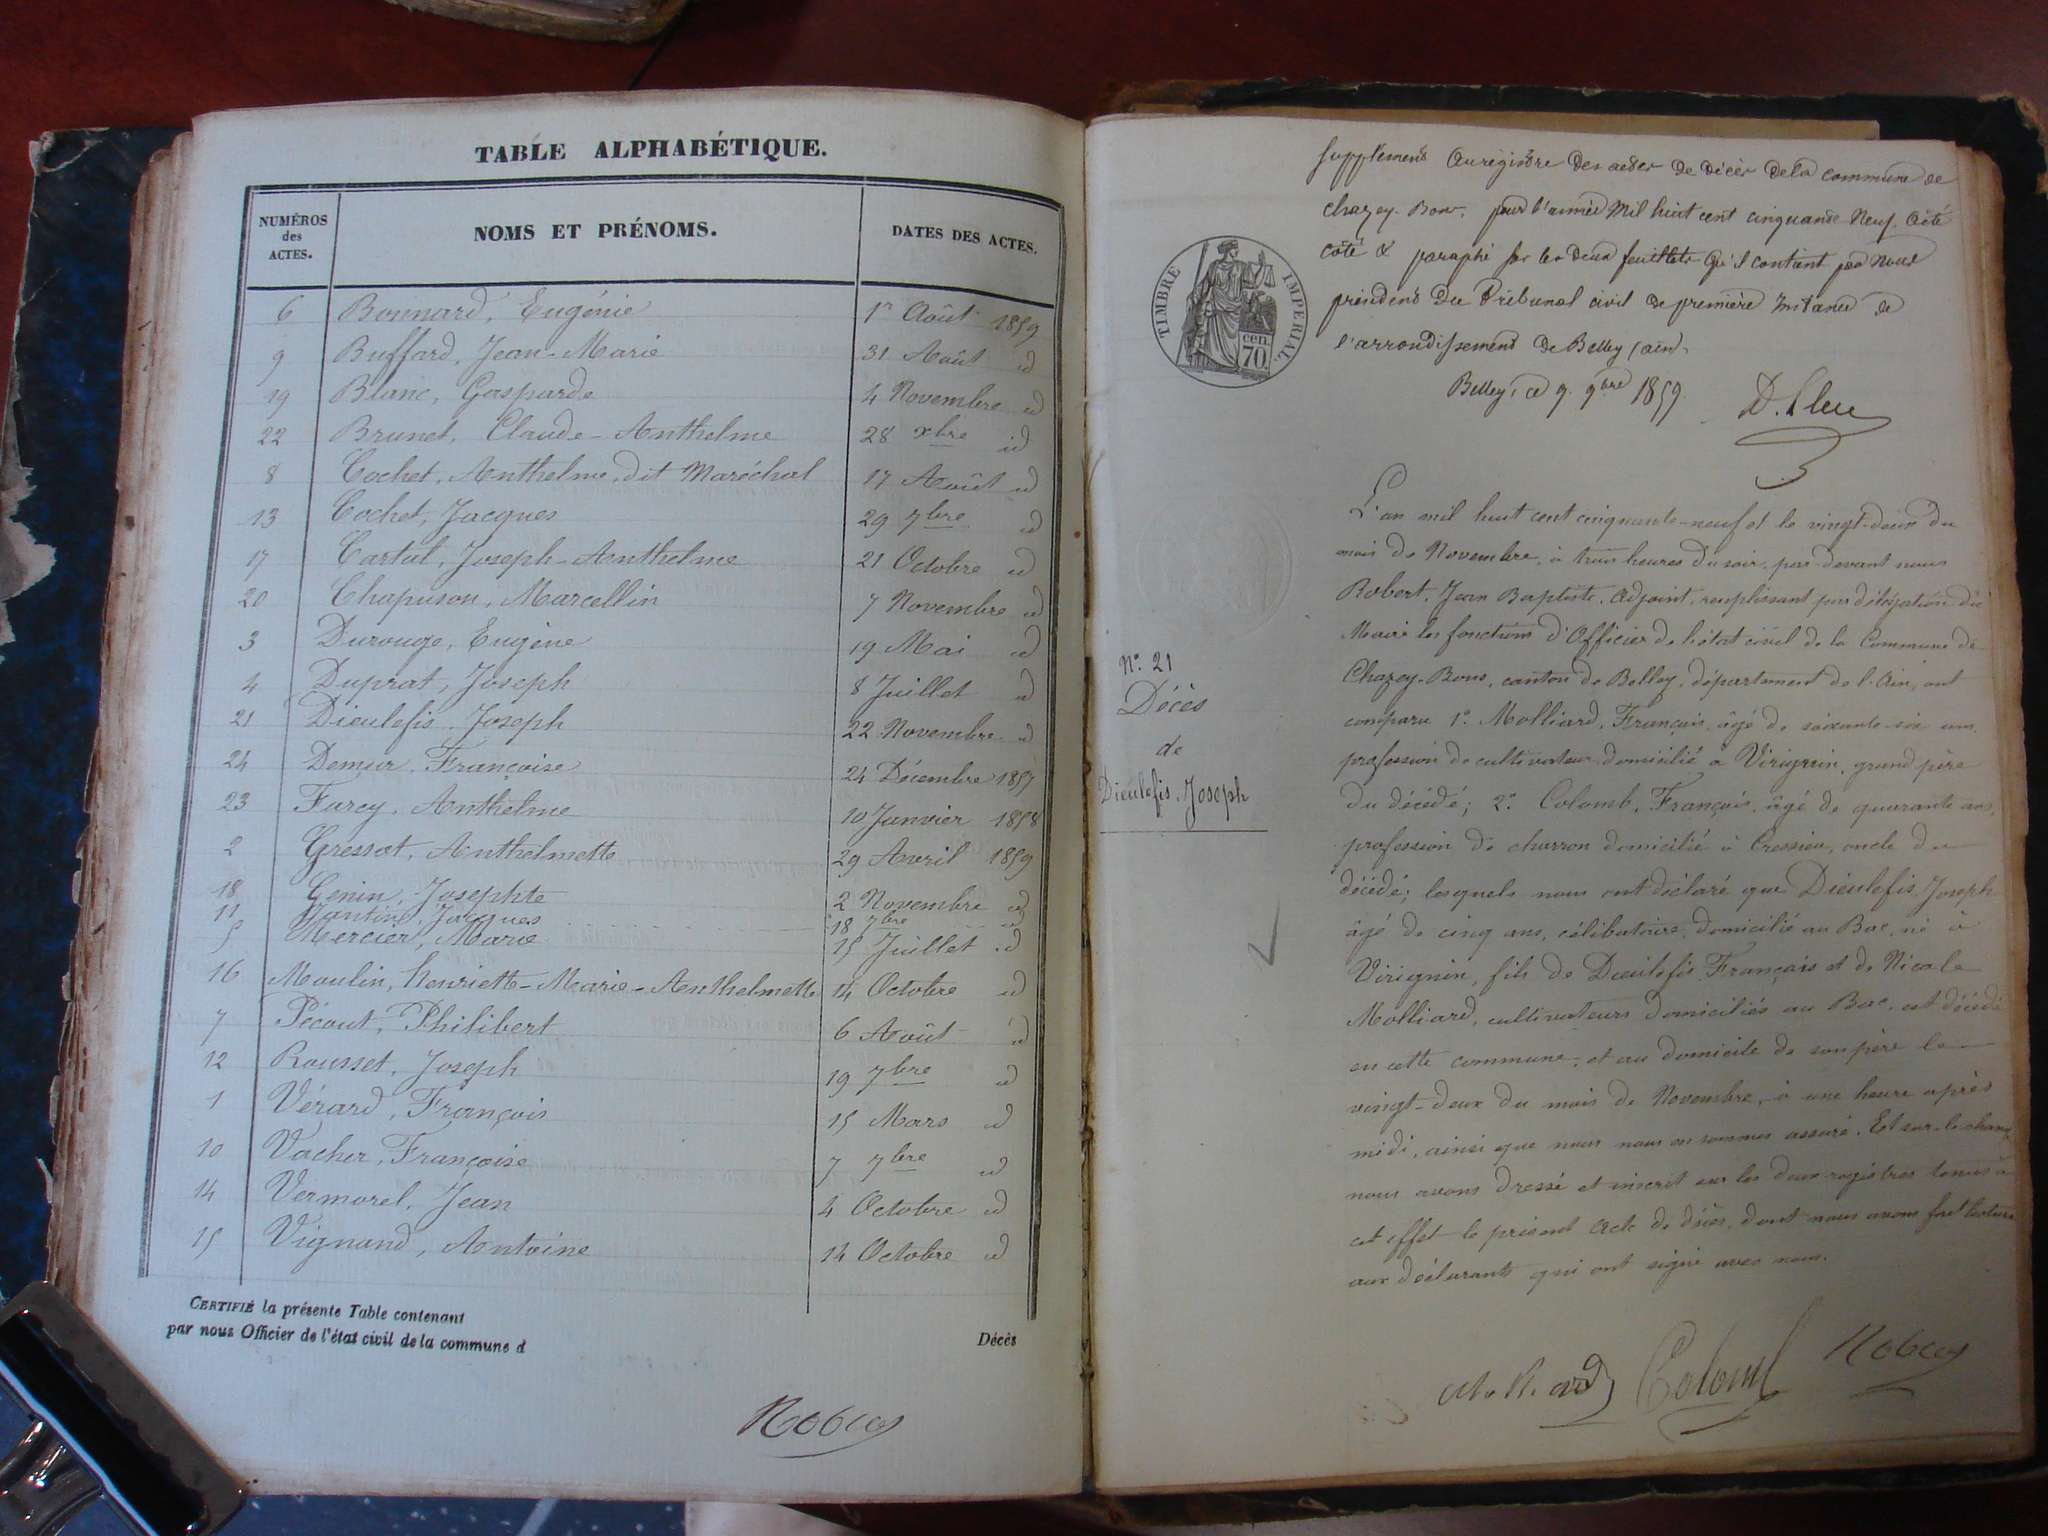 TABLE ALPHABÉTIQUE.
NUMÉROS des ACTES. NOMS ET PRÉNOMS. DATES DES ACTES.
6 Bonnard, Eugénie 1er Août 1859
9 Buffard, Jean-Marie 31 Août id
19 Blanc, Gasparde 4 Novembre id
22 Brunet, Claude-Anthelme 28 xbre id
8 Cochet, Anthelme, dit Maréchal 17 Août id
13 Cochet, Jacques 29 7bre id
17 Cartal, Joseph-Anthelme 21 Octobre id
20 Chapuson, Marcellin 7 Novembre id
3 Durouge, Eugène 19 Mai id
4 Duprat, Joseph 8 Juillet id
21 Dieulefis, Joseph 22 Novembre id
24 Demur, Françoise 24 Décembre 1857
23 Furey, Anthelme 10 Janvier 1858
2 Gressot, Anthelmette 29 Avril 1859
18 Genin, Josephte 2 Novembre id
11 Jantin, Jacques 18 7bre id
5 Mercier, Marie 15 Juillet id
16 Moulin, henriette-Marie-Anthelmette 14 Octobre id
7 Pécout, Philibert 6 Août id
12 Rousset, Joseph 19 7bre id
1 Vérard, François 15 Mars id
10 Vacher, Françoise 7 7bre id
14 Vermorel, Jean 4 Octobre id
15 Vignand, Antoine 14 Octobre id
CERTIFIÉ la présente Table contenant Décès
par nous Officier de l'état civil de la commune d
Robert
supplément au registre des actes de décès de la commune de
Chazey-Bons, pour l'année Mil huit cent cinquante Neuf. Coté
côté & paraphé sur les deux feuillets qu'il contient par Nous
président du Tribunal civil de première Instance de
l'arrondissement de Belley (ain).
Belley, ce 9. 9bre 1859.
TIMBRE IMPÉRIAL. 70 cen.
L'an mil huit cent cinquante-neuf et le vingt-deux du
mois de Novembre, à trois heures du soir, par-devant nous
Robert, Jean Baptiste, Adjoint, remplissant par délégation du
Maire les fonctions d'Officier de l'état civil de la Commune de
Chazey-Bons, canton de Belley, département de l'Ain, ont
comparu 1º. Molliard, François, âgé de soixante-six ans,
profession de cultivateur domicilié à Virignin, grand père
du décédé; 2º. Colomb, François, âgé de quarante ans,
profession de charron domicilié à Cressieu, oncle du
décédé; lesquels nous ont déclaré que Dieulefis, Joseph
âgé de cinq ans, célibataire, domicilié au Bac, né à
Virignin, fils de Dieulefis François et de Nicole
Molliard, cultivateurs domiciliés au Bac, est décédé
en cette commune, et au domicile de son père le
vingt-deux du mois de Novembre, à une heure après
midi, ainsi que nous nous en sommes assuré. Et sur-le-champ
nous avons dressé et inscrit sur les deux registres tenus à
cet effet le présent acte de décès, dont nous avons fait lecture
aux déclarants qui ont signé avec nous.
Nº. 21
Décès
de
Dieulefis, Joseph
Molliard Colomb Robert